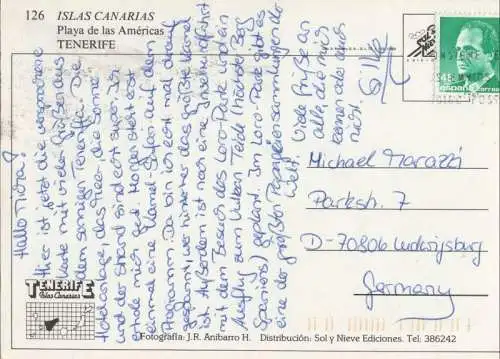 126 ISLAS CANARIAS
Playa de las Américas
TENERIFE
Hallo Micra!
Hier ist jetzt die versprochene
Karte mit vielen Grüßen aus
dem sonnigen Teneriffa. Die
Hotelanlage, das Meer, die Sonne
und der Strand sind echt super. Ich
erhole mich gut. Morgen steht erst
einmal eine Kamel-Safari auf dem
Programm. Da bin ich echt mal drauf
gespannt, wer hinterher das größte Kamel
ist. Außerdem ist noch eine Inselrundfahrt
mit dem Besuch des Loro-Parks und ein
Ausflug zum Vulkan Teide (höchster Berg
Spaniens) geplant. Im Loro-Park gibt es
eine der größten Papageiensammlungen der
Welt.
Viele Grüße an
alle, die mich
kennen oder auch
nicht.
Silke
45
España
correos
Michael Marazzi
Parkstr. 7
D-70806 Ludwigsburg
Germany
TENERIFE
Islas Canarias
Fotografía: J.R. Anibarro H. Distribución: Sol y Nieve Ediciones. Tel: 386242